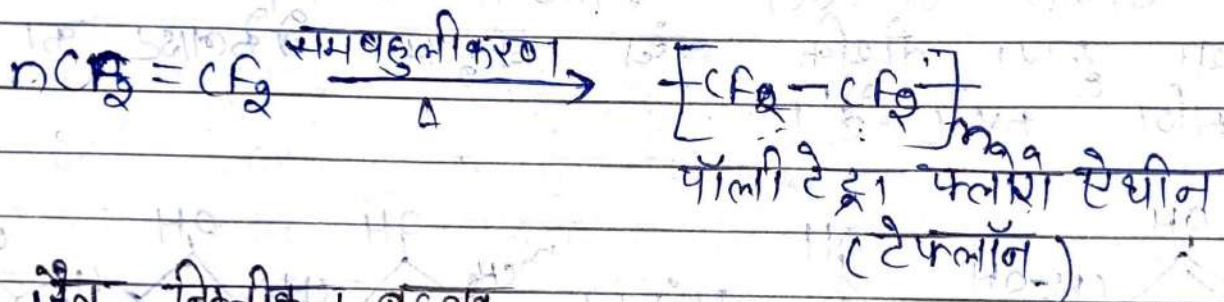 nCF₂ = CF₂ समबहुलीकरण/Δ → [CF₂ – CF₂]n
पॉली टेट्रा फ्लोरो ऐथीन
(टेफ्लॉन)
जैव